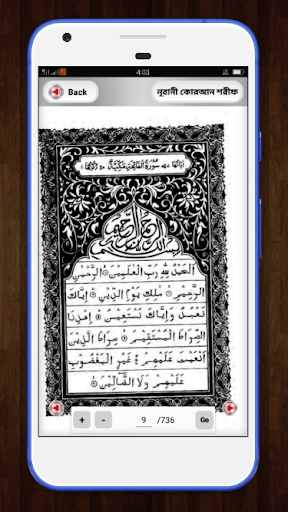 4:03
Back
নূরানী কোরআন শরীফ
سُوْرَةُ الْفَاتِحَةِ مَكِّيَّةٌ
بسم الله الرحمن الرحيم
اَلْحَمْدُ لِلّٰهِ رَبِّ الْعٰلَمِيْنَ ۝ الرَّحْمٰنِ
الرَّحِيْمِ ۝ مٰلِكِ يَوْمِ الدِّيْنِ ۝ اِيَّاكَ
نَعْبُدُ وَاِيَّاكَ نَسْتَعِيْنُ ۝ اِهْدِنَا
الصِّرَاطَ الْمُسْتَقِيْمَ ۝ صِرَاطَ الَّذِيْنَ
اَنْعَمْتَ عَلَيْهِمْ ۝ غَيْرِ الْمَغْضُوْبِ
عَلَيْهِمْ وَلَا الضَّآلِّيْنَ ۝
+ - 9 /736 Go